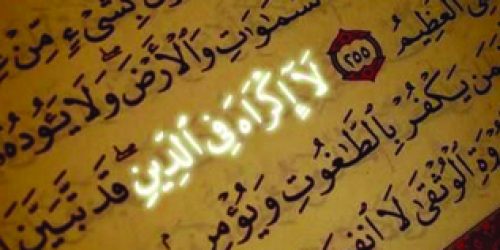 بِشَىْءٍ مِّنْ
سَّمَٰوَٰتِ وَٱلْأَرْضَ ۖ وَلَا يَـُٔودُهُۥ
ٱلْعَظِيمُ ٢٥٥ لَآ إِكْرَاهَ فِى ٱلدِّينِ ۖ قَد تَّبَيَّنَ
مَن يَكْفُرْ بِٱلطَّٰغُوتِ وَيُؤْمِنۢ
وَةِ ٱلْوُثْقَىٰ لَا ٱنفِصَ